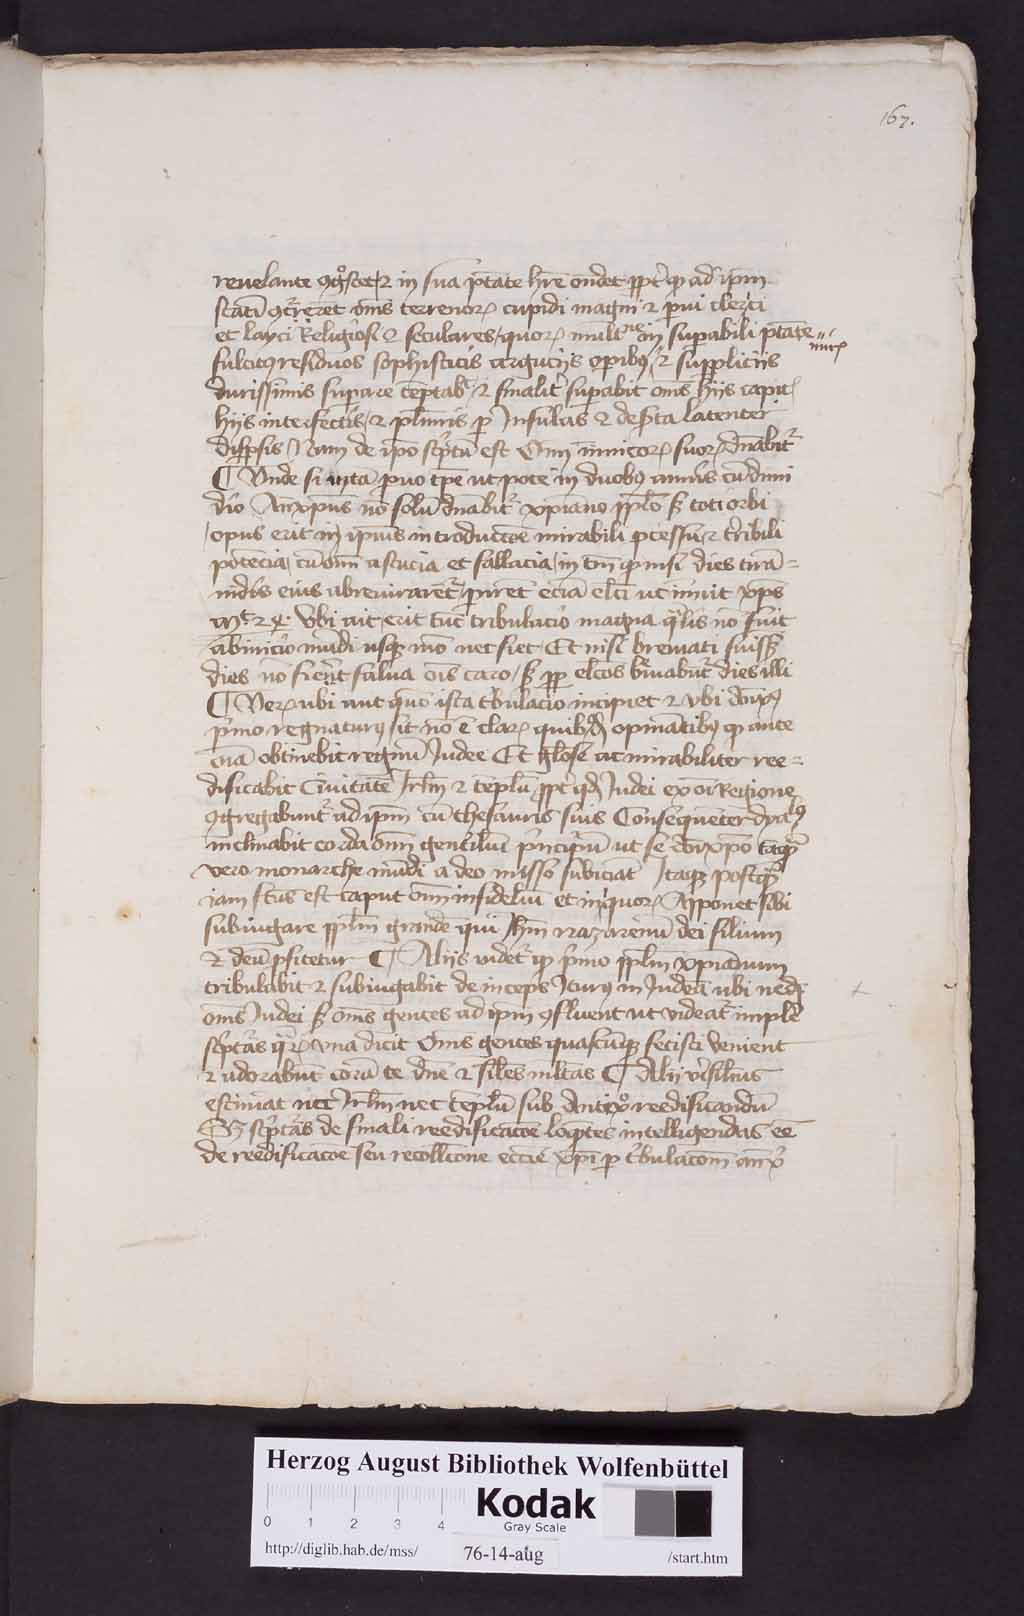 167.
reuelante cognoscet et in sua ptate hre ondet ppt q ad ipm
statī ꝯcrerēt oms terrenoꝝ cupidi magni et parui clerici
et layci Religiosi et seculares quoꝝ multne in superabili ptate
fulcitꝰ residuos sophisticis argucijs operibꝰ et supplicijs
durissimis superare temptabit et finaliter superabit oms hijs capit
hijs interfectis et plurimis p Insulas et deserta latenter
dispsis Nam de ipo scptū est Omn inimicoꝝ suoꝝ dnabitur
¶ Vnde si iuxta paruo tpe ut pote in duobꝰ annis cū dimi
dio Antixpus nō solū dnabitur xpiano pplo sꝫ toti orbi
opus erit in ipius introductōe mirabili pcessu et tribili
potencia cū omi astucia et fallacia in tm q nisi dies tirā-
nidis eius abreuiarētur perirēt eciā elcī ut innuit xpus
Mt. 24. Vbi ait erit tūc tribulacio magna qualis nō fuit
ab inicio mūdi usqꝫ mō nec fiet Et nisi breuiati fuissꝫ
dies nō fieret salua ois caro sꝫ ppt elcos breuiabūtur dies illi
¶ Veꝝ ubi aut quō ista tribulacio incipiet et ubi
primo regnaturꝰ sit nō ē claꝝ quibꝰdā opinātibꝰ q ante
oīa obtinebit regnū Iudee Et gliose ac mirabiliter ree-
dificabit Ciuitatē Irlm et templū ppt qd Iudei ex oī Regione
ꝯgregabuntur ad ipm cū thesauris suis Consequēter dyabolꝰ
inclinabit corda omn gentiliū principū ut se antixpo taqꝫ
vero monarche mūdi a deo misso subiciāt Itaqꝫ postqꝫ
iam fctus est caput omn infideliū et iniquoꝝ Apponet sibi
subiugare pplm grandē qui Ihm nazarenū dei filium
et deū pfitetur ¶ Alijs videtur q primo pplm xpianum
tribulabit et subiugabit deinceps Iturꝰ in Iudeā ubi nedū
oms Iudei sꝫ oms gentes ad ipm ꝯfluent ut videatur implere
scripturas quaꝝ vna dicit Oms gentes quascūqꝫ fecisti venient
et adorabūt corā te dne et siles multas ¶ Alij verisilius
estimāt nec Irlm nec templū sub Antixo reedificandū
Sꝫ scptas de finali reedificacoe loqntes intelligendas eē
de reedificacoe seu recollcione eccie xpi p tribulacōm antixi